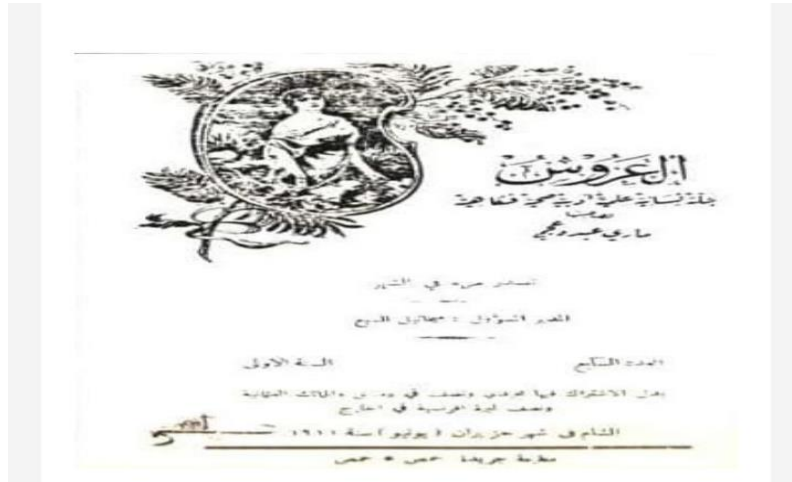 العَرُوسْ
مجلة نسائية علمية ادبية صحية فكاهية
لصاحبتها
ماري عبده عجمي
تصدر مرة في الشهر
المدير المسؤول : ميخائيل السبع
العدد السابع السنة الاولى
بدل الاشتراك فيها مجيدي ونصف في دمشق والممالك العثمانية
ونصف ليرة افرنسية في الخارج
الشام في شهر حزيران ( يونيو ) سنة ١٩١١
مطبعة جريدة حمص * حمص